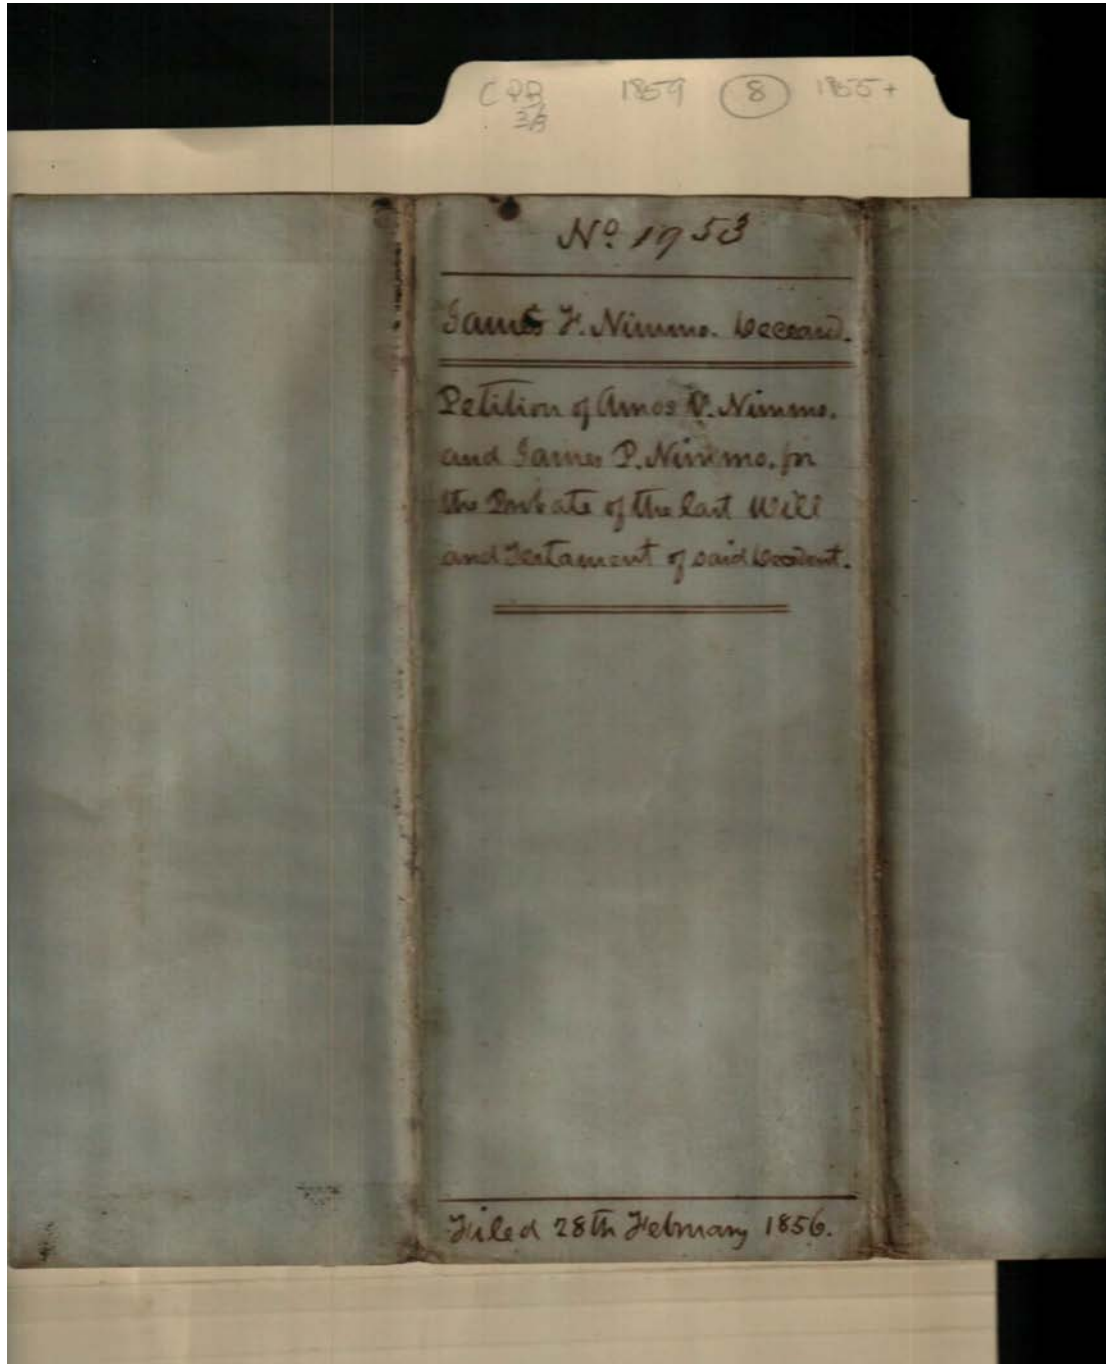 CPB 1859 8 1855+
36
Nº 1953
James F. Nimmo. Deceasd.
Petition of Amos P. Nimmo.
and James P. Nimmo. for
the Probate of the last Will
and Testament of said Decedent.
Filed 28th February 1856.